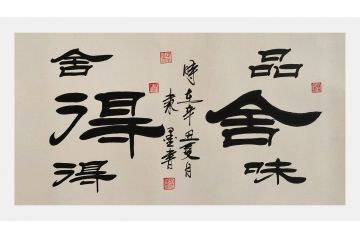 品舍味
舍得得
時在辛丑夏月
袁墨書